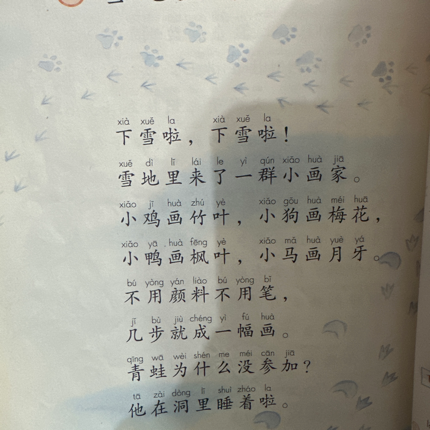 xià xuě la xià xuě la
下雪啦，下雪啦！
xuě dì lǐ lái le yì qún xiǎo huà jiā
雪地里来了一群小画家。
xiǎo jī huà zhú yè xiǎo gǒu huà méi huā
小鸡画竹叶，小狗画梅花，
xiǎo yā huà fēng yè xiǎo mǎ huà yuè yá
小鸭画枫叶，小马画月牙。
bú yòng yán liào bú yòng bǐ
不用颜料不用笔，
jǐ bù jiù chéng yì fú huà
几步就成一幅画。
qīng wā wèi shén me méi cān jiā
青蛙为什么没参加？
tā zài dòng lǐ shuì zháo la
他在洞里睡着啦。